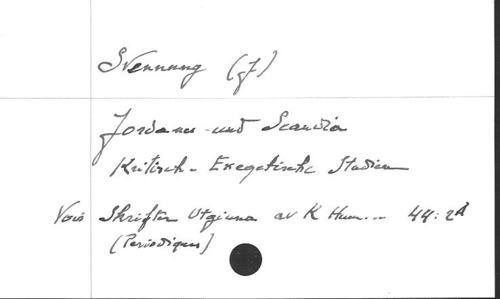 Svennung (J)
Jordanes und Scandia
Kritisch - Exegetische Studien
Vois Skrifter Utgivna av K Hum... 44: 2A
(Periodiques)